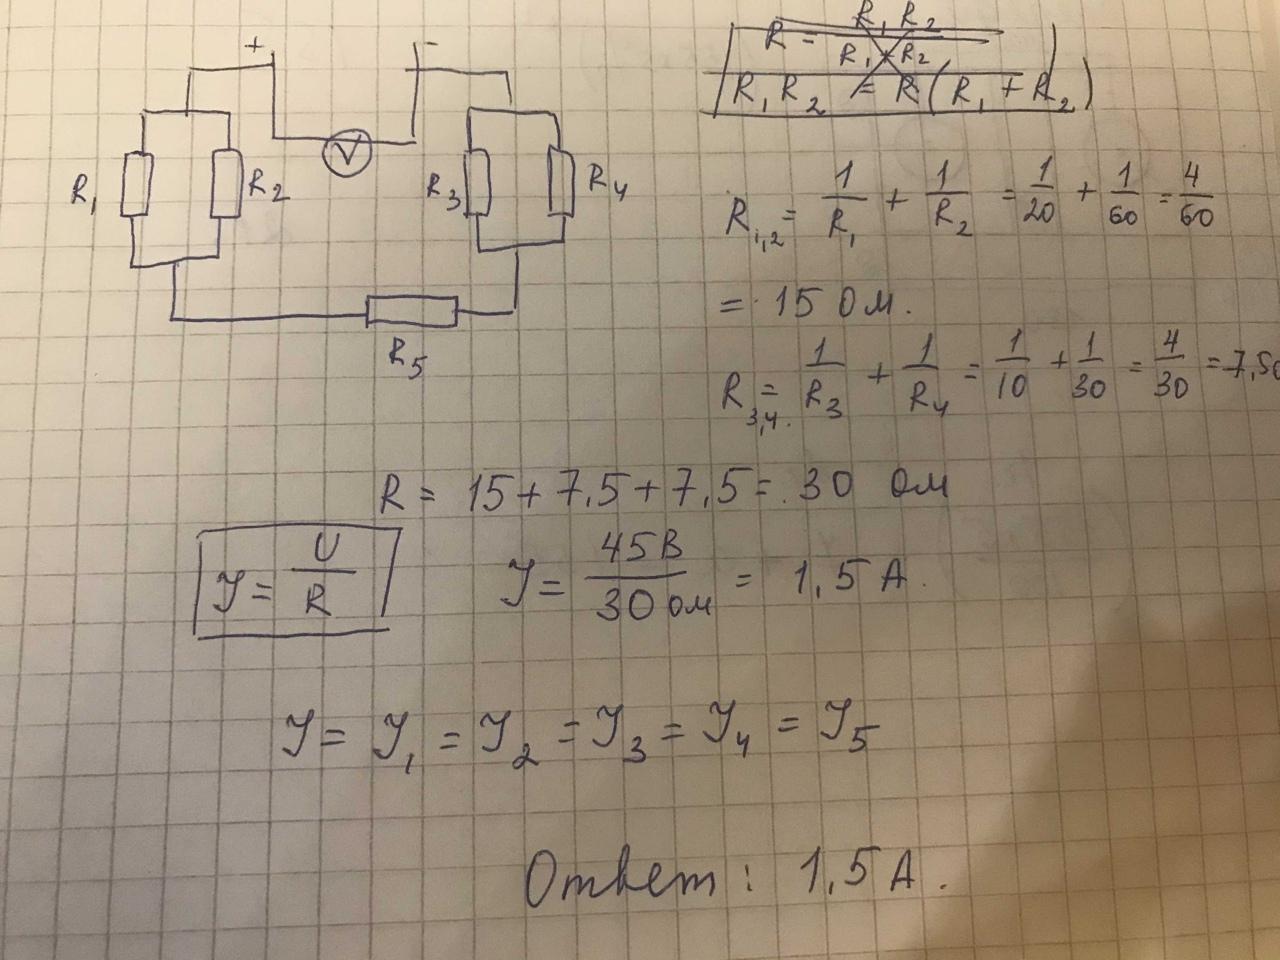 + -
V
R₁ R₂ R₃ R₄
R₅
R = R₁R₂ / R₁ + R₂
R₁R₂ = R(R₁ + R₂)
R₁,₂ = 1/R₁ + 1/R₂ = 1/20 + 1/60 = 4/60
= 15 Ом.
R₃,₄. = 1/R₃ + 1/R₄ = 1/10 + 1/30 = 4/30 = 7,5
R = 15 + 7,5 + 7,5 = 30 Ом
У = U/R У = 45В/30 Ом = 1,5 А.
У = У₁ = У₂ = У₃ = У₄ = У₅
Ответ: 1,5 А.